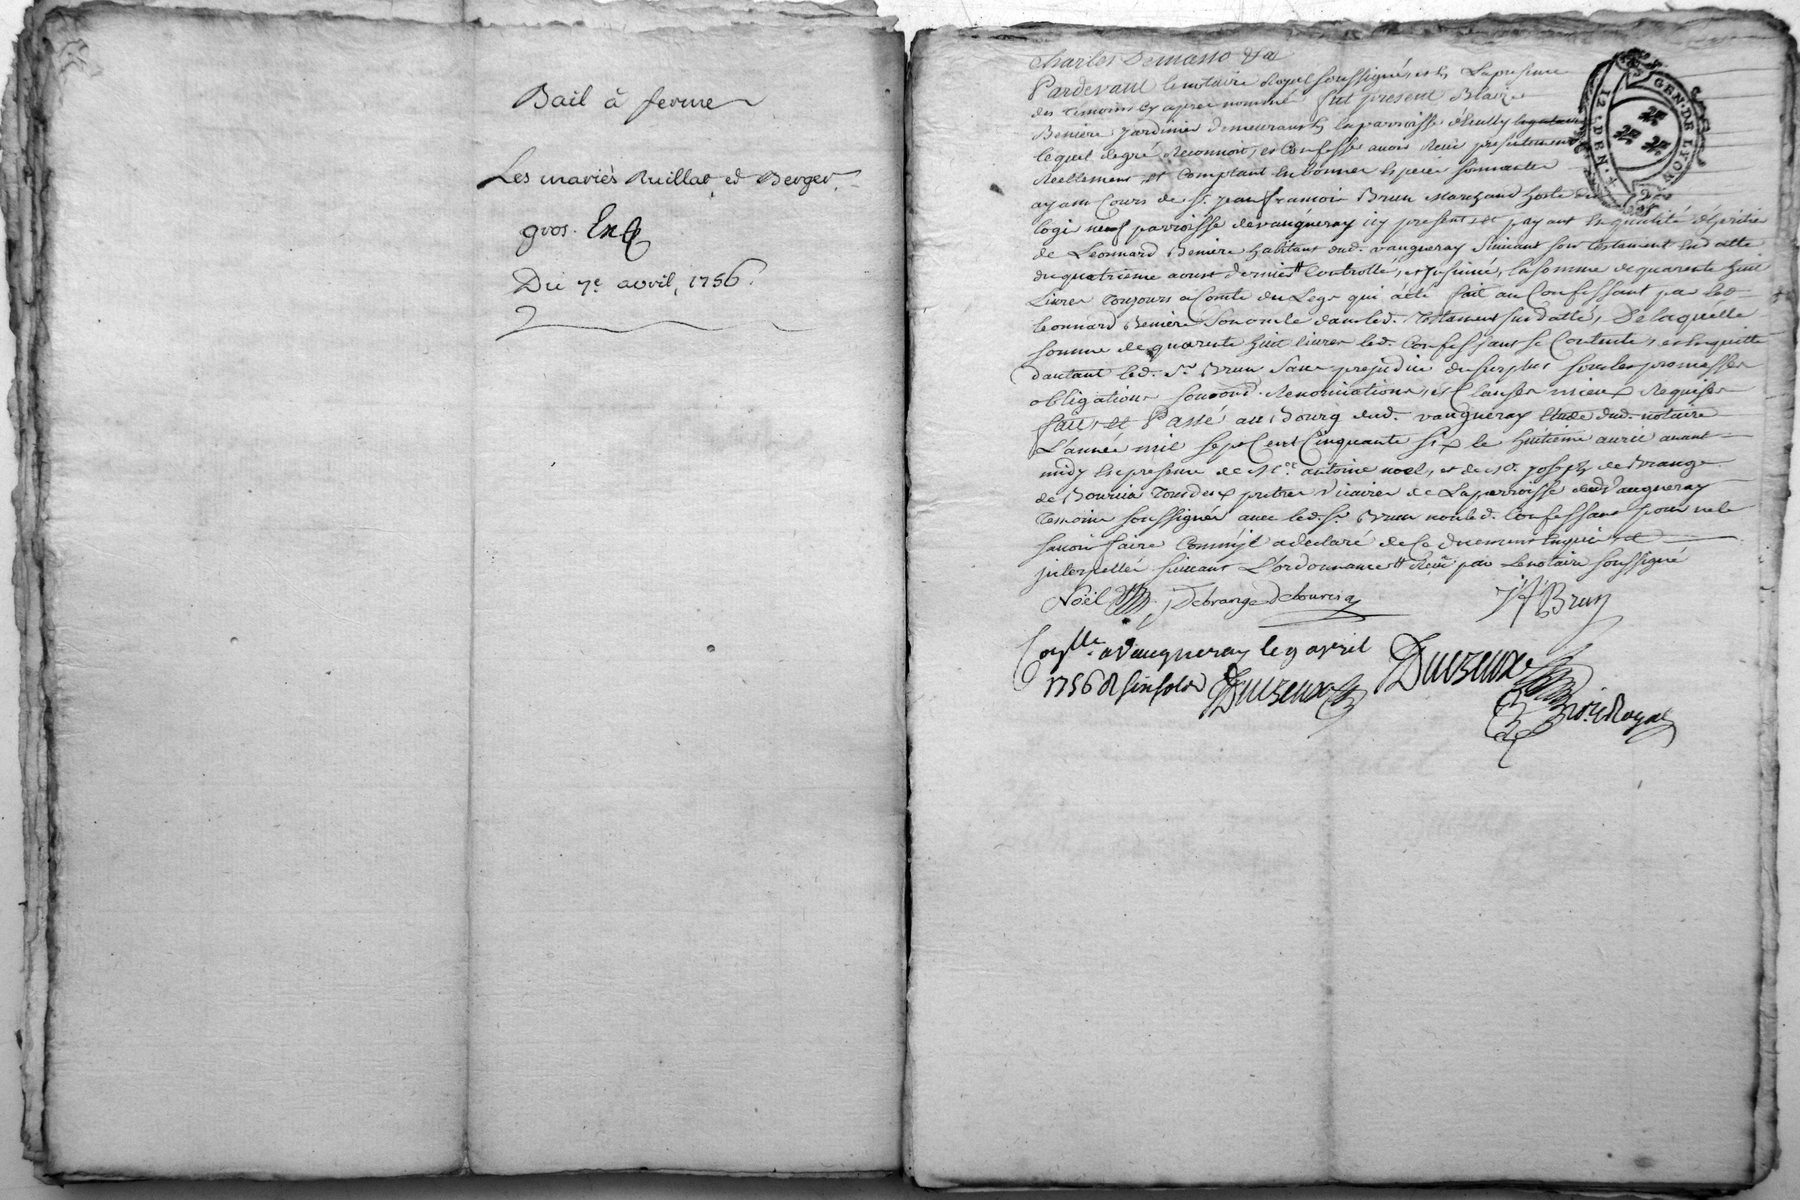 Bail à ferme
Les mariés Ruillat et Berger
gros. Exp
Du 7e avril, 1756.
Charles Demasso &a
Pardevant le notaire Royal soussigné, et en la presence
des temoins cy apres nommés fut present Blaize
Beniere jardinier demeurant en la parroisse d'Ecully
lequel de gré Reconnoit, et Confesse avoir Reçu presentement
Reellement et Comptant en bonnes especes sonnantes
ayant Cours de Sr. jean francois Brun Marchand hoste du
logi neuf parroisse de vaugneray icy present et payant en qualité d'heritier
de Leonnard Beniere habitant dud. vaugneray suivant son testament en datte
du quatrieme aoust dernier Controllé, et insinué, la somme de quarente huit
Livres toujours a Comte du Legs qui a été fait au Confessant par led.
Leonnard Beniere son oncle dans led. testament susdatté, De laquelle
somme de quarente huit livres led. Confessant se Contente, et en quitte
d'autant led. Sr. Brun sans prejudice du surplus sous les promesses
obligations Renonciations, et Clauses mieux Requises
fait et Passé au Bourg dud. vaugneray Etude dud. notaire
L'année mil sept Cent Cinquante six le huitieme avril avant
midy en presence de Mre. antoine noel, et de Me. joseph de Brange
de Bourcia tous deux pretres vicaires de La parroisse dud. Vaugneray
temoins soussignés avec led. Sr. Brun non led. Confessant pour ne le
savoir faire Comm'jl a declaré de Ce duement enquis et
jnterpellé suivant L'ordonnance Reçu par Le notaire soussigné
Noël Debrange Debourcia J F Brun
Conllé a Vaugneray le 9 avril
1756 R six sols Duvzeux Duvzeux
nore Royal
GEN. DE LYON
12. DEN.